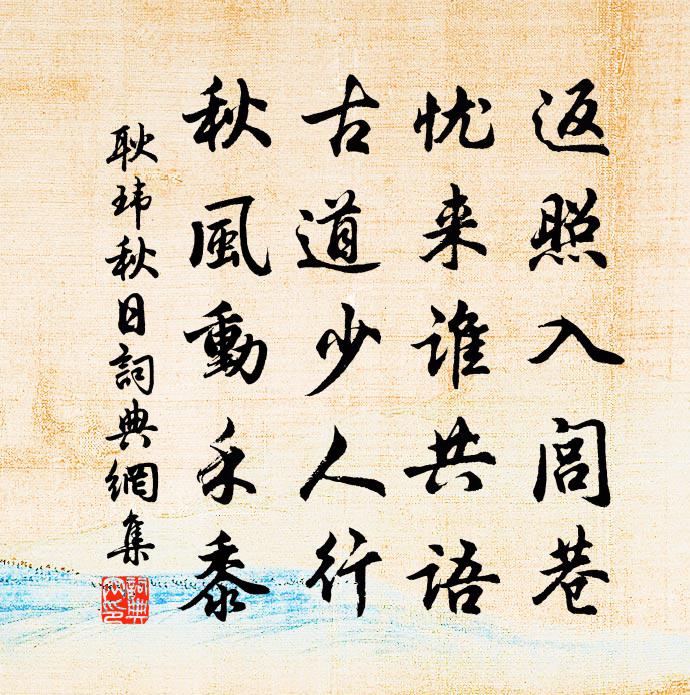 返照入闾巷
忧来誰共語
古道少人行
秋風動禾黍
耿玮秋日詞典網集